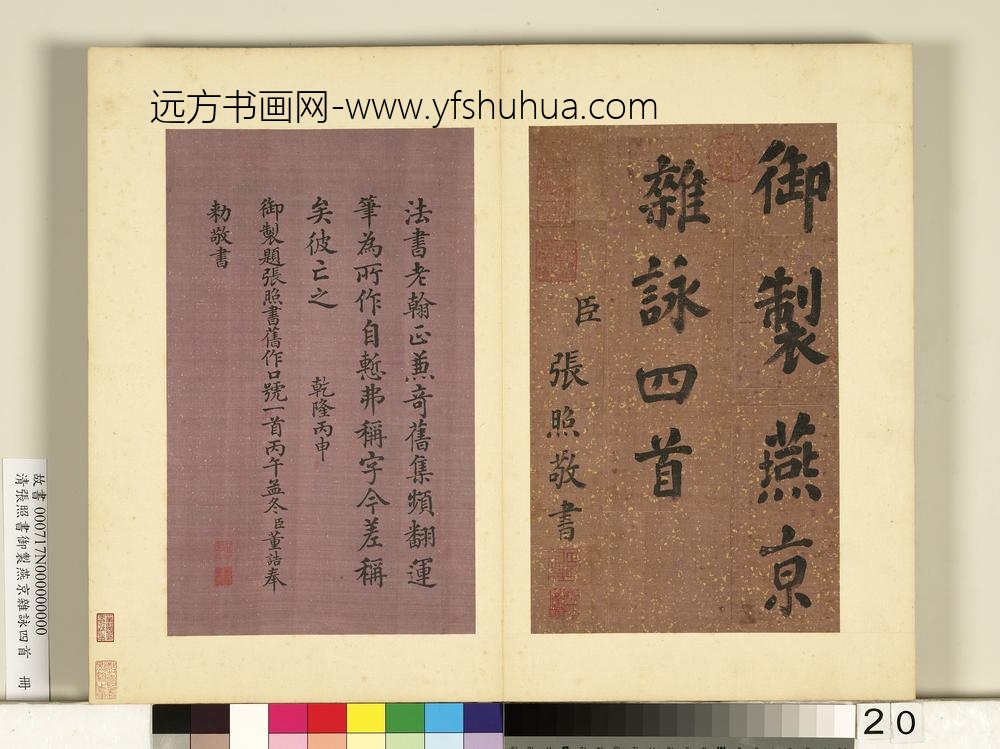 远方书画网-www.yfshuhua.com
御製燕京
雜詠四首
臣張照敬書
法書老翰正兼奇舊集頻翻運
筆為所作自慙弗稱字今差稱
矣彼亡之　乾隆丙申
御製題張照書舊作口號一首丙午孟冬臣董誥奉
勅敬書
故書 000717N000000000
清張照書御製燕京雜詠四首　冊
20